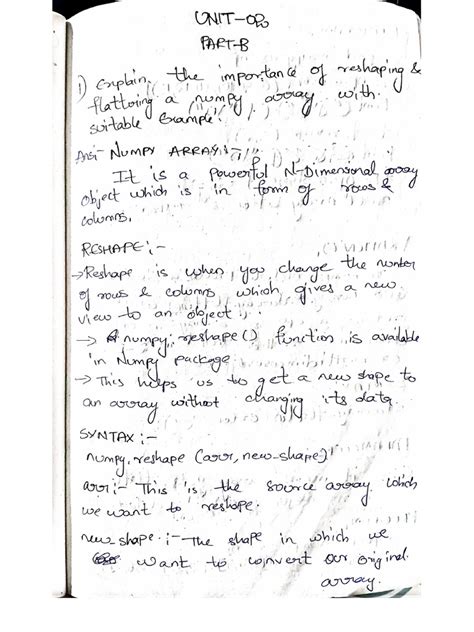 UNIT-02
PART-B
1) Explain the importance of reshaping &
flattring a numpy array with
suitable Example.
Ans:- NUMPY ARRAY:-
It is a powerful N-Dimensional array
object which is in form of rows &
columns.
RESHAPE:-
→Reshape is when you change the number
of rows & columns which gives a new
view to an object.
→ numpy.reshape() function is available
in Numpy package
→ This helps us to get a new shape to
an array without changing its data.
SYNTAX:-
numpy.reshape (arr, new-shape)
arr:- This is the source array which
we want to reshape.
new-shape:- The shape in which we
want to convert our original
array.